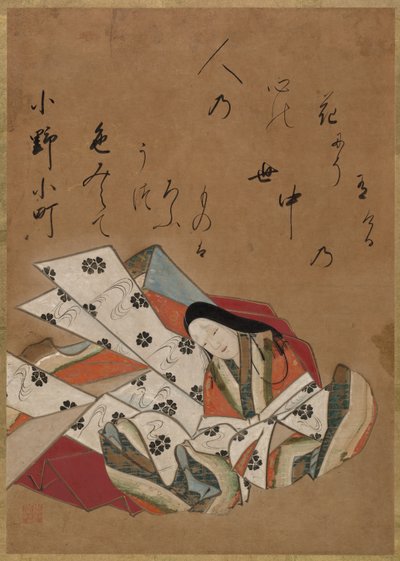 小野小町
色みえて
うつ
ろふ
ものは
世中乃
人乃
心の
花にそ